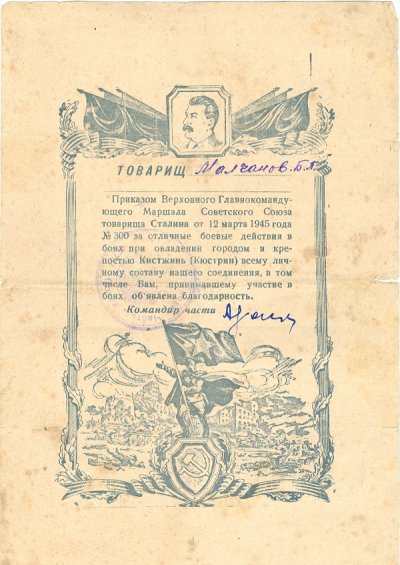 ТОВАРИЩ Молчанов Б.П.
Приказом Верховного Главвокоманду-
ющего Маршала Советского Союза
товарища Сталина от 12 марта 1945 года
№ 300 за отличные боевые действия в
боях при овладении городом и кре-
постью Кистжинь (Кюстрин) всему лич-
ному составу нашего соединения, в том
числе Вам, принимавшему участие в
боях об'явлена благодарность.
Командир части